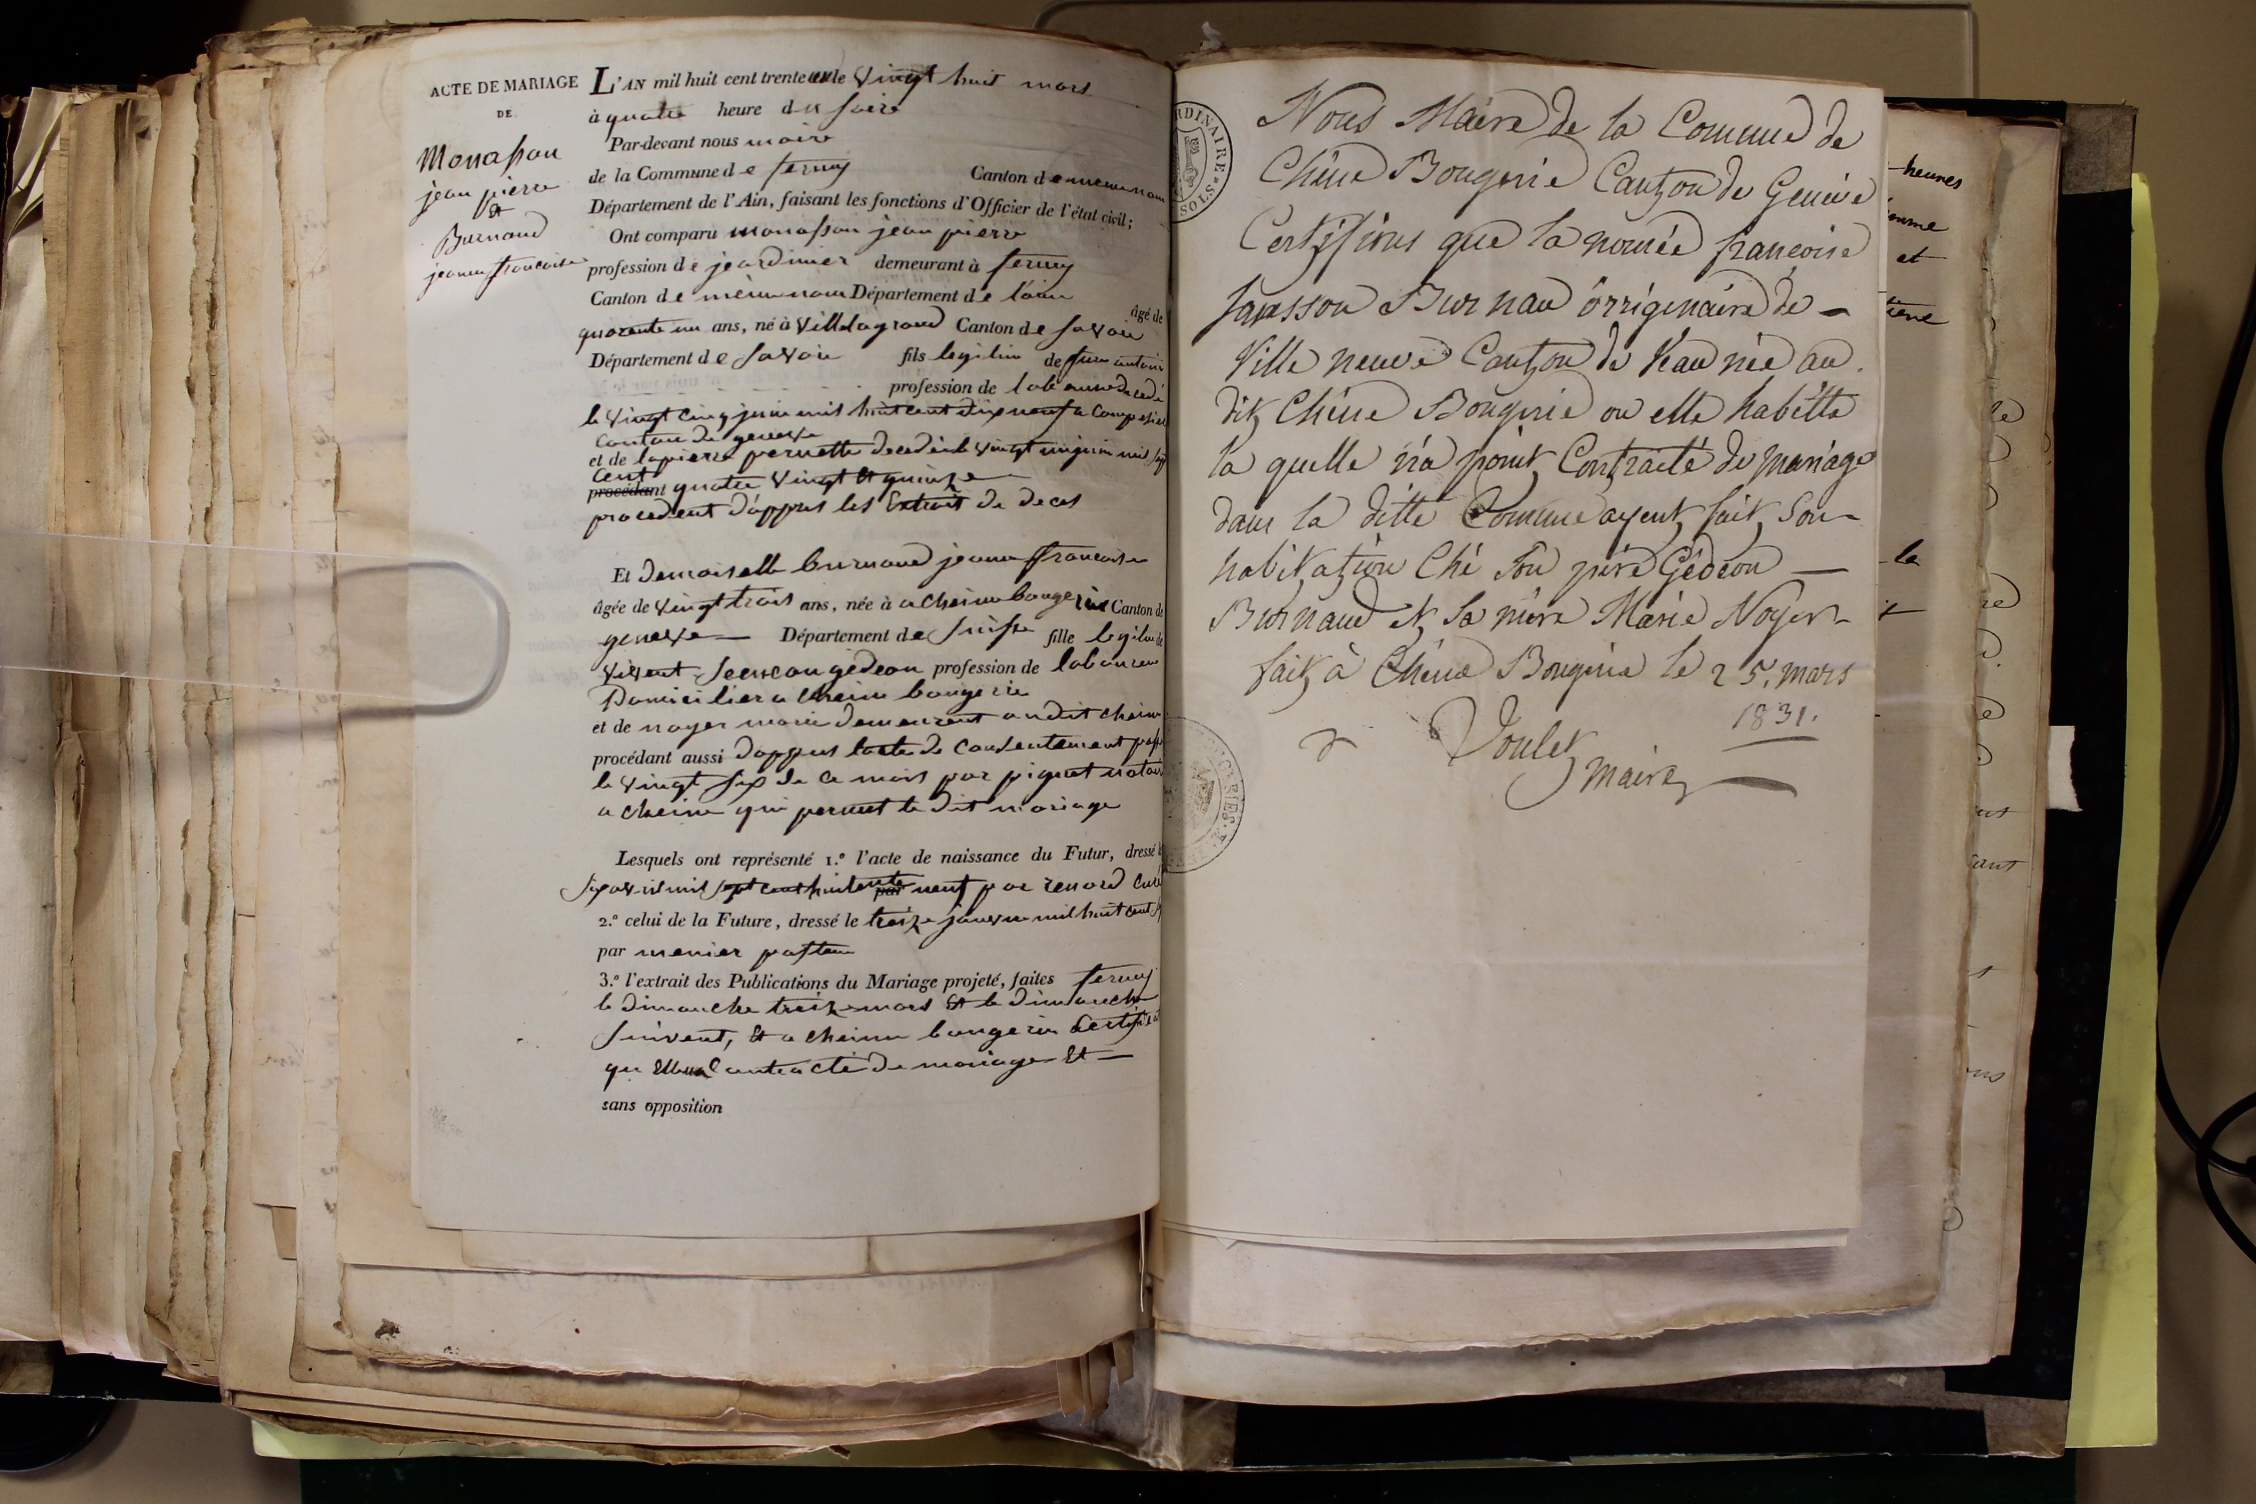 ACTE DE MARIAGE
DE
Monasson
jean pierre
et
Burnaud
jeanne francoise
L'AN mil huit cent trente un le vingt huit mars
à quatre heure du soire
Par-devant nous maire
de la Commune de ferney Canton de meme nom
Département de l'Ain, faisant les fonctions d'Officier de l'état civil;
Ont comparu monasson jean pierre
profession de jeardinier demeurant à ferney
Canton de mème nom Département de l'ain
âgé de
quarente un ans, né à villelagrand Canton de savoie
Département de savoie fils legitim de feu antoine
profession de laboureur decedé
le vingt cinq juin mil huit cent dix neuf a Compesieres
Canton de geneve
et de lapierre pernette decedée le vingt un juin mil sept
Cent
procédant quatre vingt et quinze
procedent d'appres les Extrait de deces
Et demoiselle burnaud jeanne francoise
âgée de vingt trois ans, née à a cheine bougerie Canton de
geneve Département de suisse fille legitime de
vivent gédeon profession de laboureur
Domicilier a cheine bougerie
et de noyer marie demeurent audit cheine
procédant aussi d'appres lacte de consentement passé
le vingt six de ce mois par piguet notaire
a cheine qui permet le dit mariage
Lesquels ont représenté 1.° l'acte de naissance du Futur, dressé le
six avril mil sept cent huitente neuf par renard curé
2.° celui de la Future, dressé le treize janvier mil huit cent
par menier pasteur
3.° l'extrait des Publications du Mariage projeté, faites ferney
le dimanche treize mars et le dimanche
suivent, et a cheine bougerie certificat
que contracté de mariage et
sans opposition
Nous Maire de la Commune de
Chêne Bougerie Canton de Genève
Certifions que la nomée françoise
Burnau orriginaire de
Ville neuve Canton de Vau née au
dit Chêne Bougerie ou elle habitte
la quelle n'a point Contracté de mariage
dans la ditte Commune ayent fait son
habitation Ché son père Gédeon
Burnaud et sa mère Marie Noyer
fait à Chêne Bougerie le 25. mars
1831.
Voulet
maire
heures
et
la